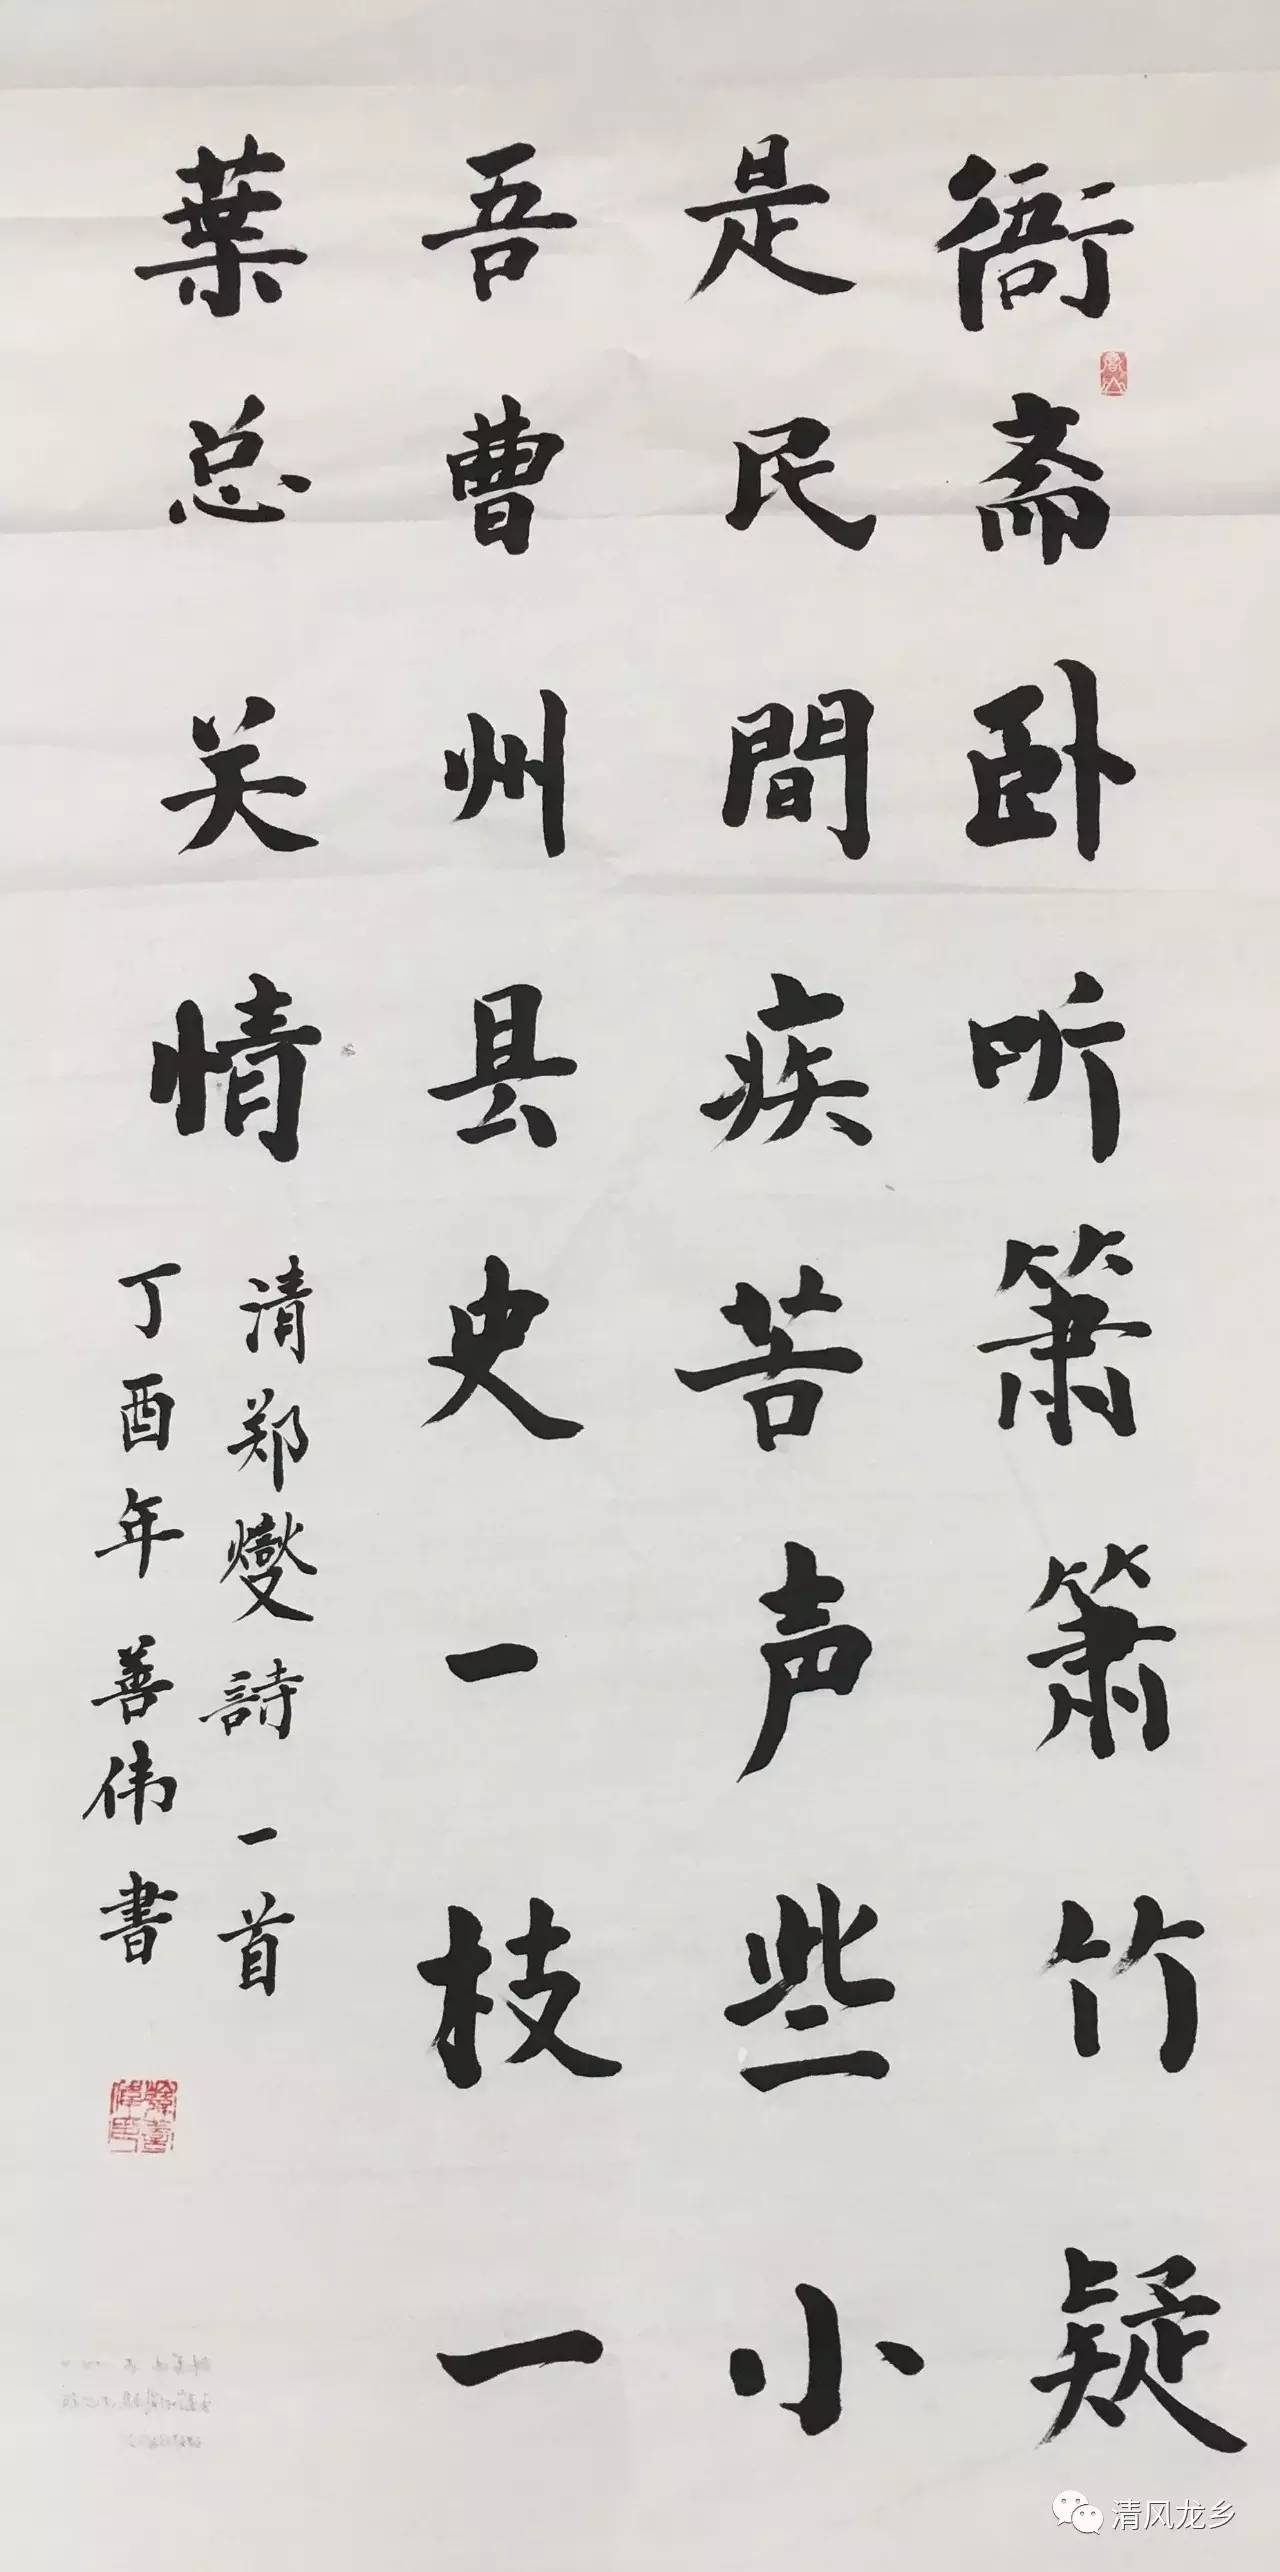 衙斋卧听箫箫竹疑
是民間疾苦声些小
吾曹州县吏一枝一
葉总关情
清郑燮詩一首
丁酉年善伟書
清风龙乡